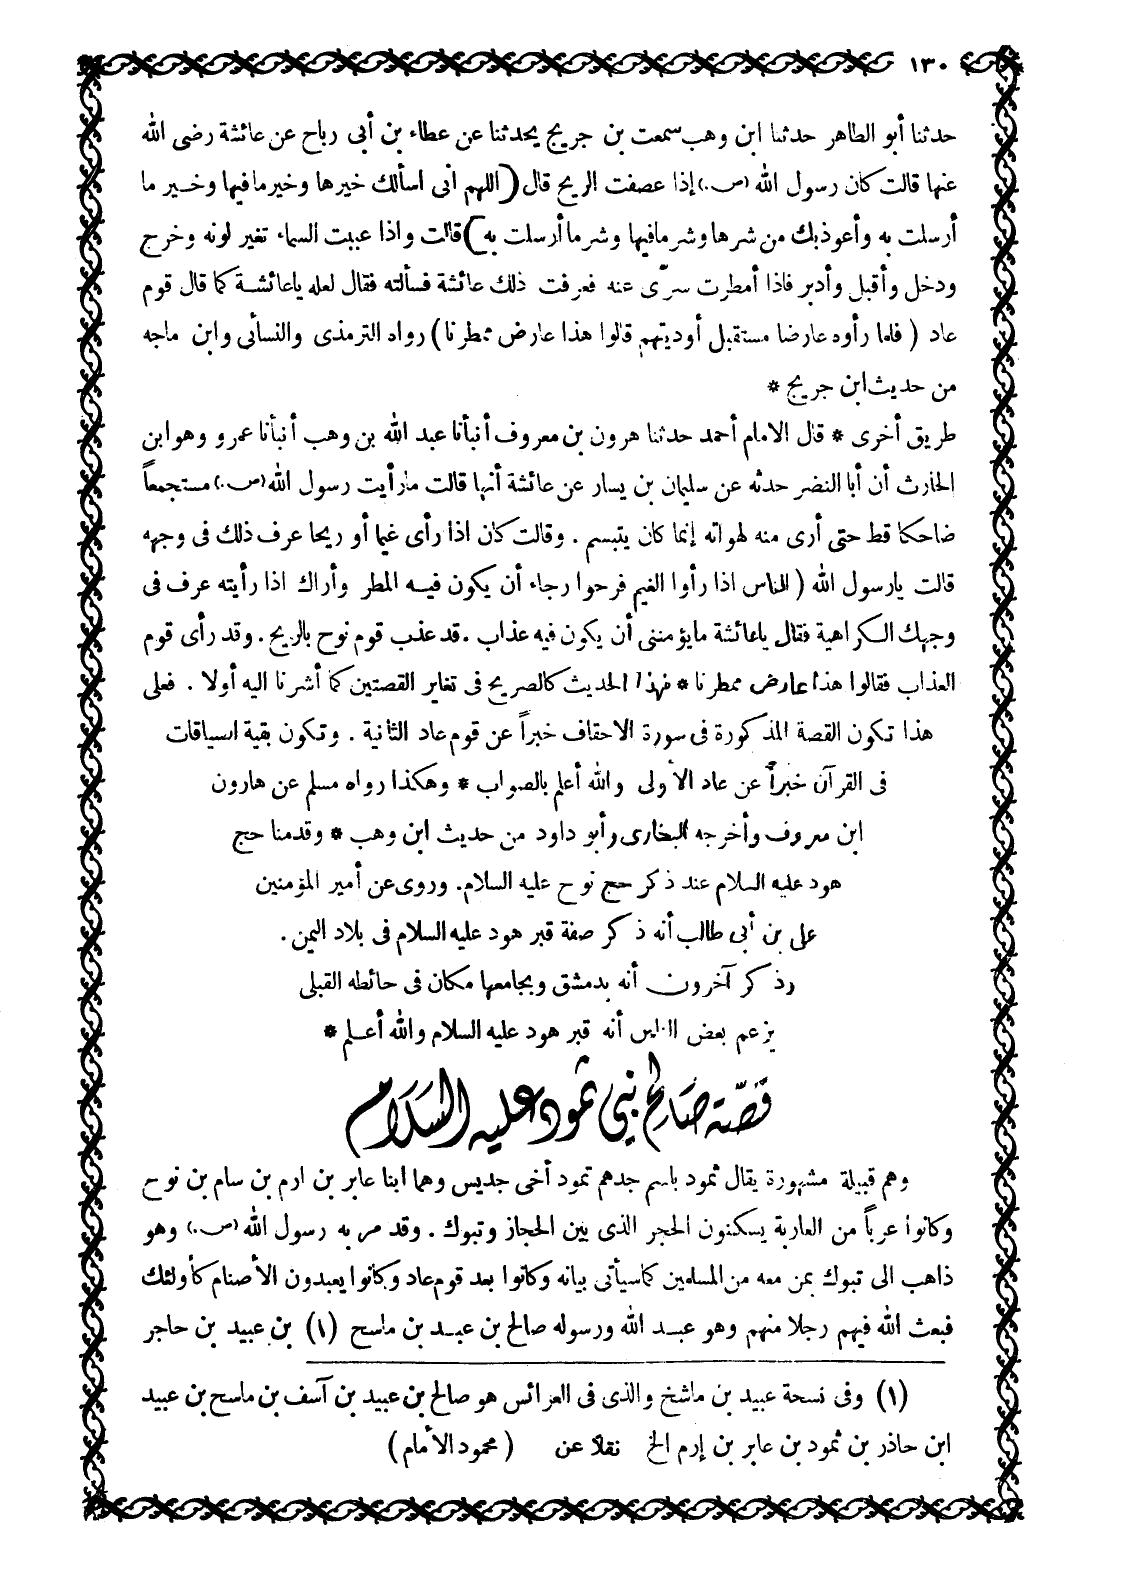 ١٣٠
حدثنا أبو الطاهر حدثنا ابن وهب سمعت بن جريج يحدثنا عن عطاء بن أبى رباح عن عائشة رضى الله
عنها قالت كان رسول الله (ص.) إذا عصفت الريح قال (اللهم انى اسألك خيرها وخير مافيها وخير ما
أرسلت به وأعوذبك من شرها وشر مافيها وشر ما أرسلت به) قالت واذا عببت السماء تغير لونه وخرج
ودخل وأقبل وأدبر فاذا أمطرت سرّى عنه فعرفت ذلك عائشة فسألته فقال لعله ياعائشة كما قال قوم
عاد (فلما رأوه عارضا مستقبل أوديتهم قالوا هذا عارض ممطرنا) رواه الترمذى والنسأنى وابن ماجه
من حديث ابن جريج *
طريق أخرى * قال الامام أحمد حدثنا هرون بن معروف أنبأنا عبد الله بن وهب أنبأنا عمرو وهو ابن
الحارث أن أبا النضر حدثه عن سليمان بن يسار عن عائشة أنها قالت مارأيت رسول الله (ص.) مستجمعاً
ضاحكا قط حتى أرى منه لهواته إنما كان يتبسم . وقالت كان اذا رأى غيما أو ريحا عرف ذلك فى وجهه
قالت يارسول الله (الناس اذا رأوا الغيم فرحوا رجاء أن يكون فيه المطر وأراك اذا رأيته عرف فى
وجهك الكراهية فقال ياعائشة مايؤمننى أن يكون فيه عذاب . قد عذب قوم نوح بالريح . وقد رأى قوم
العذاب فقالوا هذا عارض ممطرنا * فهذا الحديث كالصريح فى تغاير القصتين كما أشرنا اليه أولا . فعلى
هذا تكون القصة المذكورة فى سورة الاحقاف خبراً عن قوم عاد الثانية . وتكون بقية السياقات
فى القرآن خبراً عن عاد الأولى والله أعلم بالصواب * وهكذا رواه مسلم عن هارون
ابن معروف وأخرجه البخارى وأبو داود من حديث ابن وهب * وقدمنا حج
هود عليه السلام عند ذكر حج نوح عليه السلام. وروى عن أمير المؤمنين
على بن أبى طالب أنه ذكر صفة قبر هود عليه السلام فى بلاد اليمن .
وذكر آخرون أنه بدمشق وبجامعها مكان فى حائطه القبلى
يزعم بعض الناس أنه قبر هود عليه السلام والله أعلم *
قصّة صالح نبي ثمود عليه السلام
وهم قبيلة مشهورة يقال ثمود باسم جدهم ثمود أخى جديس وهما ابنا عابر بن ارم بن سام بن نوح
وكانوا عرباً من العاربة يسكنون الحجر الذى بين الحجاز وتبوك . وقد مر به رسول الله (ص.) وهو
ذاهب الى تبوك بمن معه من المسلمين كما سيأتى بيانه وكانوا بعد قوم عاد وكانوا يعبدون الأصنام كأولئك
فبعث الله فيهم رجلا منهم وهو عبد الله ورسوله صالح بن عبد بن ماسح (١) بن عبيد بن حاجر
(١) وفى نسخة عبيد بن ماشخ والذى فى العرائس هو صالح بن عبيد بن آسف بن ماسح بن عبيد
ابن حاذر بن ثمود بن عابر بن إرم الخ نقلا عن (محمود الأمام)